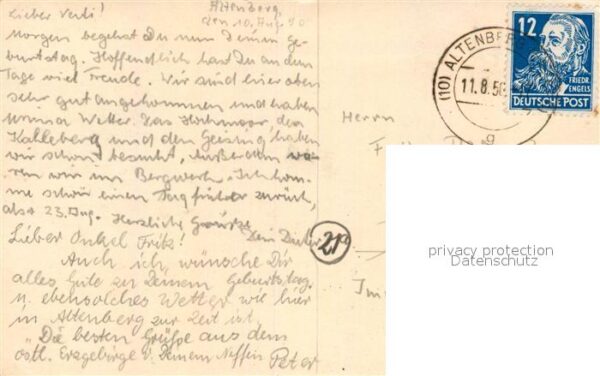 Altenberg,
den 10. Aug. 50
Lieber
Morgen begehst Du nun Deinen Ge-
burtstag. Hoffentlich hast Du an dem
Tage viel Freude. Wir sind hier oben
sehr gut angekommen und haben
Wetter. Das Hochmoor, den
Kahleberg und den Geising haben
wir schon besucht. Außerdem wa-
ren wir im Bergwerk. Ich kom-
me schon einen Tag früher zurück,
also 23. Aug. Herzliche Grüße
Dein Dieter
Lieber Onkel Fritz!
Auch ich wünsche Dir
alles Gute zu Deinem Geburtstag
u. ebensolches Wetter wie hier
in Altenberg zur Zeit ist.
Die besten Grüße aus dem
östl. Erzgebirge v. Deinem Neffen Peter
(10) ALTENBERG
11.8.50
g
12
FRIEDR.
ENGELS
DEUTSCHE POST
Herrn
21a
privacy protection
Datenschutz